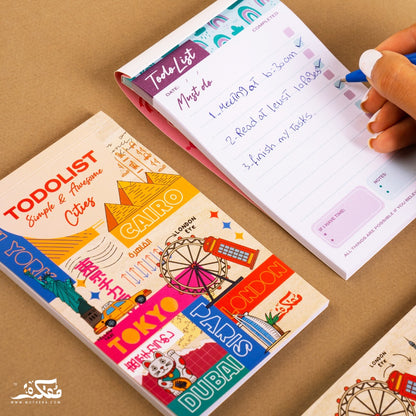 TODOLIST
Simple & Awesome
Cities
CAIRO
YORK
LONDON
EYE
TOKYO
LONDON
PARIS
DUBAI
TodoList
COMPLETED
DATE:
Must do
1. Meeting at 10:30 am
2. Read at least 10 pages
3. finish my tasks.
IF I HAVE TIME:
NOTES:
ALL THINGS ARE POSSIBLE IF YOU BELIE
LONDON
EYE
مفكرة
WWW.MOFKERA.COM